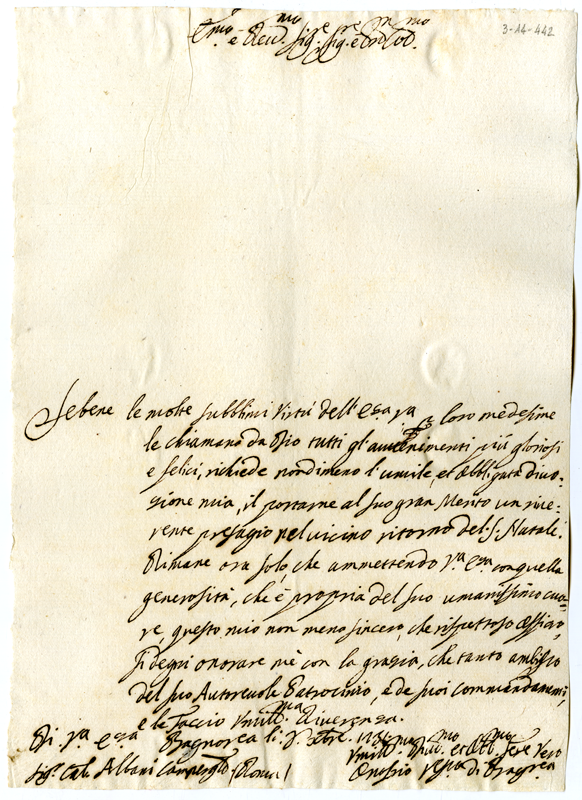 Em.mo e Rev.mo Sig.re Sig.re e Pron Col.mo
3-14-442
Sebene le molte sublimi Virtù dell'E.za V.ra per loro medesime
le chiamano da Dio tutti gl'avvenimenti più gloriosi
e felici, richiede nondimeno l'umile, et obbligata divo-
zione mia, il portarne al suo gran Merito un rive-
rente presagio nel vicino ritorno del S. Natale.
Rimane ora solo, che ammettendo V.ra E.za con quella
generosità, che è propria del suo umanissimo cuo-
re, questo mio non meno sincero, che rispettoso Offizio,
si degni onorare me con la grazia, che tanto ambisco
del suo Autorevole Patrocinio, e de suoi commandamenti,
e le faccio Umiliss.ma riverenza.
Di V.ra E.za Bagnorea li
Umill.mo Div.mo et Obb.mo Serv Vero
Sig.r Card. Albani Camerlengo (Roma)
Onofrio Vesc.o di Bagnorea